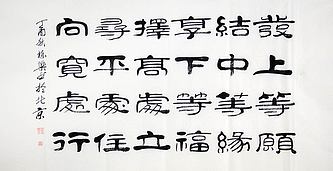 發上等願
結中等緣
享下等福
擇高處立
尋平處住
向寬處行
丁酉秋於北京